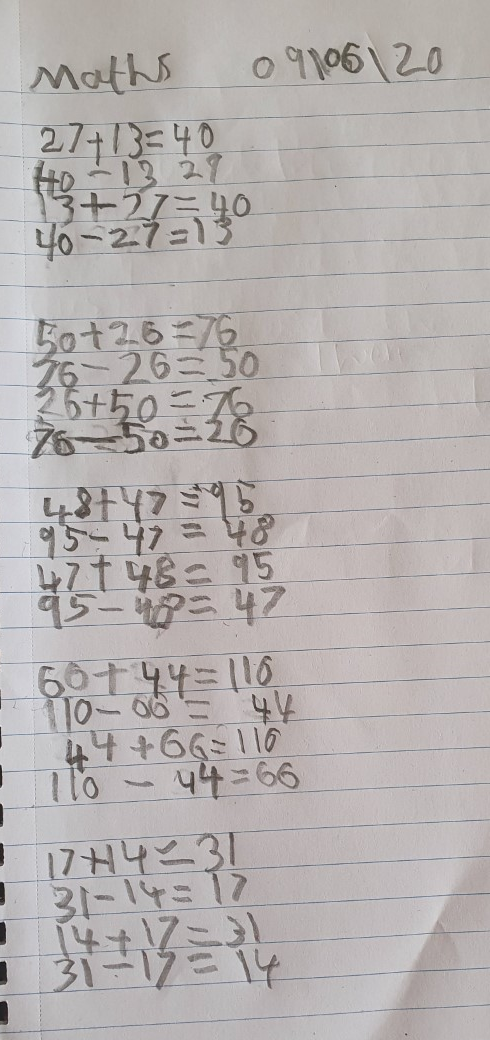 Maths 09/06/20
27+13=40
40-13 27
13+27=40
40-27=13
50+26=76
76-26=50
26+50=76
76-50=26
48+47=95
95-47=48
47+48=95
95-48=47
66+44=110
110-66=44
44+66=110
110-44=66
17+14=31
31-14=17
14+17=31
31-17=14